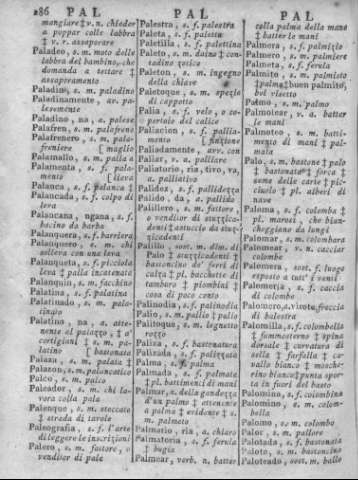 286 PAL
PAL
PAL
mangiare ‡ v. n. chieder
a poppar colle labbra
‡ v. r. assaporare
Paladeo, s. m. moto delle
labbra del bambino, che
domanda a tettare ‡
assaporamento
Paladino, s. m. paladino
Paladinamente, av. palesemente
Paladino, na, a. palese
Palafren, s. m. palafreno
Palafrenero, s. m. palafreniere
[maglio
Palamallo, s. m. palla a
Palamenta, s. f. palamento
[leva
Palanca, s. f. palanca ‡
Palancada, s. f. colpo di
leva
Palancana, ngana, s. f.
bacino da barba
Palanquera, s. f. barriera
Palanquero, s. m. chi
solleva con una leva
Palanqueta, s. f. picciola
leva ‡ palla incatenata
Palanquin, s. m. facchino
Palatina, s. f. palatina
Palatinado, s. m. palatinato
Palatino, na, a. attenente
al palazzo, ‡ a'
cortigiani ‡ s. m. palatino
[bastonata
Palazo, s. m. palata ‡
Palazon, s. m. palancatico
Palco, s. m. palco
Paleador, s. m. chi lavora
colla pala
Palenque, s. m. steccato
‡ strada di tavole
Paleografia, s. f. l'arte
di leggere le inscrizioni
Palero, s. m. fattore, o
venditor di pale
Palestra, s. f. palestra
Paleta, s. f. paletta
Paletilla, s. f. palettina
Paleto, s. m. daino ‡ contadino
zotico
Paleton, s. m. ingegno
della chiave
Paletoque, s. m. spezie
di cappotto
Palia, s. f. velo, o coperto
del calice
Paliacion, s. f. palliamento
[finzione
Paliadamente, avv. con
Paliar, v. a. palliare
Paliatorio, ria, tivo, va,
a. palliativo
Palidez, s. f. pallidezza
Palido, da, a. pallido
Palillero, s. m. fattore,
o venditor di stuzzicadenti
‡ astuccio da stuzzicadenti
Palillo, s. m. dim. di
Palo ‡ stuzzicadenti ‡
bastoncino de' fusi di
calza ‡ pl. bacchette di
tamburo ‡ piombini ‡
cosa di poco conto
Palinodia, s. f. palinodia
Palio, s. m. pallio ‡ palio
Palitoque, s. m. legnetto
rozzo
Paliza, s. f. bastonatura
Palizada, s. f. palizzata
Palma, s. f. palma
Palmada, s. f. palmata
‡ pl. battimenti di mani
Palmar, s. della grandezza
d'un palmo ‡ attenente
a palma ‡ evidente ‡ s.
m. palmeto
Palmario, ria, a. chiaro
Palmatoria, s. f. ferula
‡ bugia
Palmear, verb. n. batter
colla palma della mano
‡ batter le mani
Palmera, s. f. palmizio
Palmero, s. m. palmiere
Palmeta, s. f. ferula
Palmito, s. m. palmisto
‡ palma ‡ buon palmito,
bel visetto
Palmo, s. m. palmo
Palmotear, v. a. batter
le mani
Palmoteo, s. m. battimento
di mani ‡ palmata
Palo, s. m. bastone ‡ palo
‡ bastonata ‡ forca ‡
seme delle carte ‡ picciuolo
‡ pl. alberi di
nave
Paloma, s. f. colomba ‡
pl. marosi, che biancheggiano
da lungi
Palomar, s. m. colombara
Palomear, v. n. cacciar
colombe
Palomera, sost. f. luogo
esposto a tutt' i venti
Palomeria, s. f. caccia
di colombe
Palomero, a. virote, freccia
di balestra
Palomilla, s. f. colombella
‡ fummosterno ‡ spina
dorsale ‡ curvatura di
sella ‡ farfalla ‡ cavallo
bianco ‡ moscherino
bianco ‡ punta sporta
in fuori del basto
Palomina, s. f. colombina
Palomino, s. m. colombella
Palomo, s. m. colombo
Palor, s. m. pallore
Palotada, s. f. bastonata
Palote, s. m. bastoncino
Paloteado, sost. m. ballo